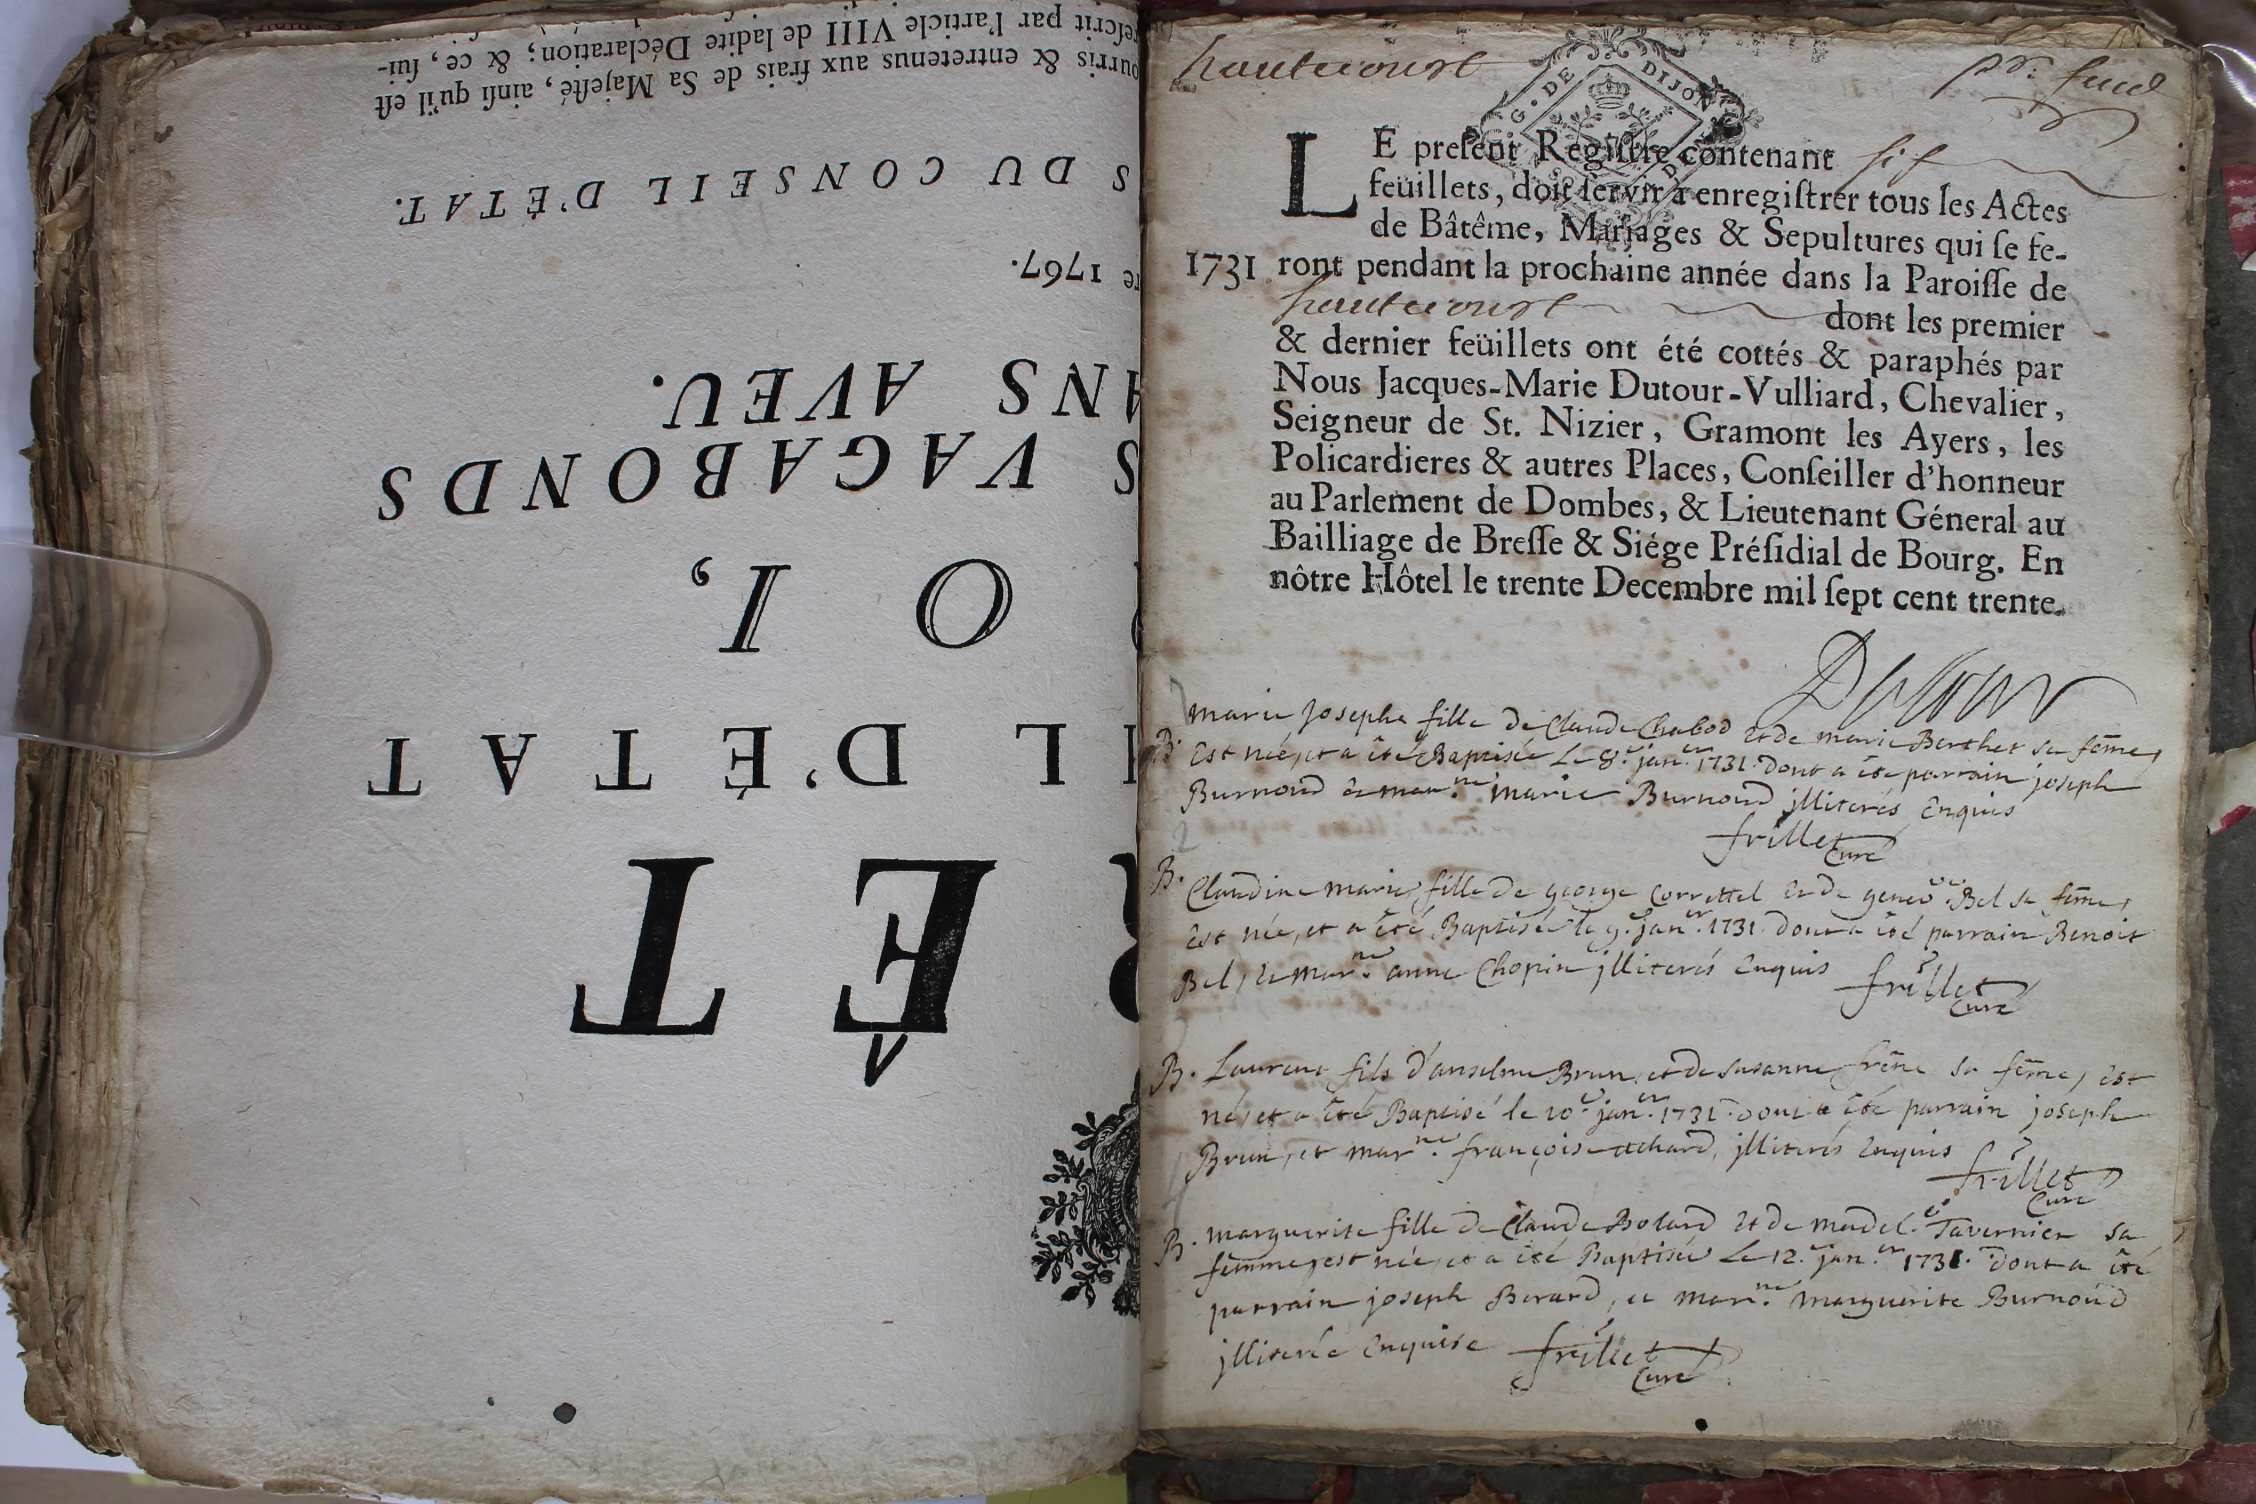 ARRÊT
L D'ÉTAT
O I,
S VAGABONDS
ANS AVEU.
re 1767.
S DU CONSEIL D'ÉTAT.
ourris & entretenus aux frais de Sa Majeſté, ainſi qu'il eſt
reſcrit par l'article VIII de ladite Déclaration; & ce, ſui-
hautecourt
G. DE DIJON
pr. feuil
LE preſent Regiſtre contenant six
feüillets, doit ſervir à enregiſtrer tous les Actes
de Bâtême, Mariages & Sepultures qui ſe fe-
1731 ront pendant la prochaine année dans la Paroiſſe de
hautecourt dont les premier
& dernier feüillets ont été cottés & paraphés par
Nous Jacques-Marie Dutour-Vulliard, Chevalier,
Seigneur de St. Nizier, Gramont les Ayers, les
Policardieres & autres Places, Conſeiller d'honneur
au Parlement de Dombes, & Lieutenant Géneral au
Bailliage de Breſſe & Siége Préſidial de Bourg. En
nôtre Hôtel le trente Decembre mil ſept cent trente.
Dutour
marie josephe fille de Claude Chabod et de marie Berthet sa fẽme,
B. est née, et a été Baptisée le 8.e jan.er 1731. dont a été parrain joseph
Burnoud et mar.ne marie Burnoud jlliterés Enquis
frillet
Curé
B. Claudine marie, fille de george Correttel et de genev.ve Bel sa fẽme,
est née, et a été Baptisée le 9.e jan.er 1731 dont a été parrain Benoit
Bel, et mar.ne anne Chopin jlliterés Enquis frillet
Curé
B. Laurent fils d'anselme Brun, et de susanne frẽne sa fẽme, est
né, et a été Baptisé le 10.e jan.er 1731. dont a été parrain joseph
Brun, et mar.ne françoise achard, jlliterés Enquis
frillet
Curé
B. marguerite fille de Claude Bolard et de madel.e Tavernier sa
femme, est née, et a été Baptisée le 12.e jan.er 1731. dont a été
parrain joseph Berard, et mar.ne marguerite Burnoud
jlliterée Enquise frillet
Curé